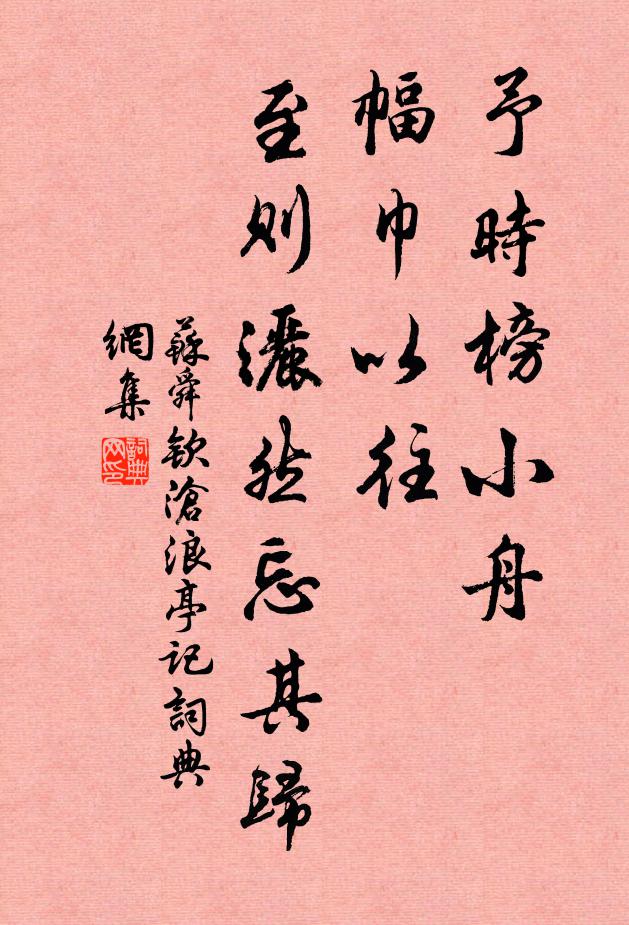 予時榜小舟
幅巾以往
至則灑然忘其歸
蘇舜欽滄浪亭記詞典
網集
詞典
网印